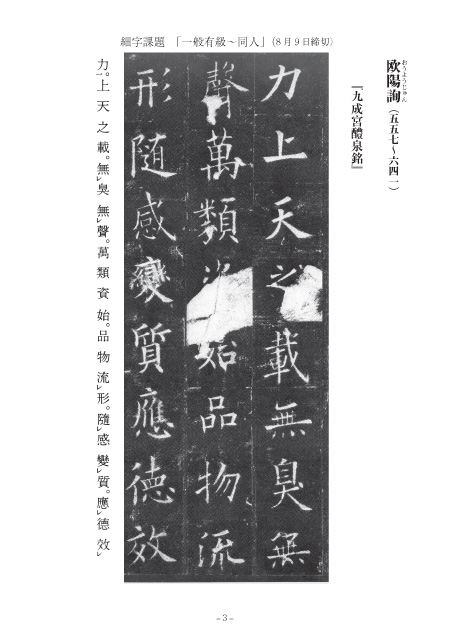 細字課題　「一般有級～同人」（8月9日締切）
欧陽詢（五五七～六四一）
おうようじゅん
『九成宮醴泉銘』
力上天之載無臭無
聲萬類資始品物流
形隨感變質應德效
力。上天之載。無レ臭無レ聲。萬類資始。品物流レ形。隨レ感變レ質。應レ德效レ
- 3 -